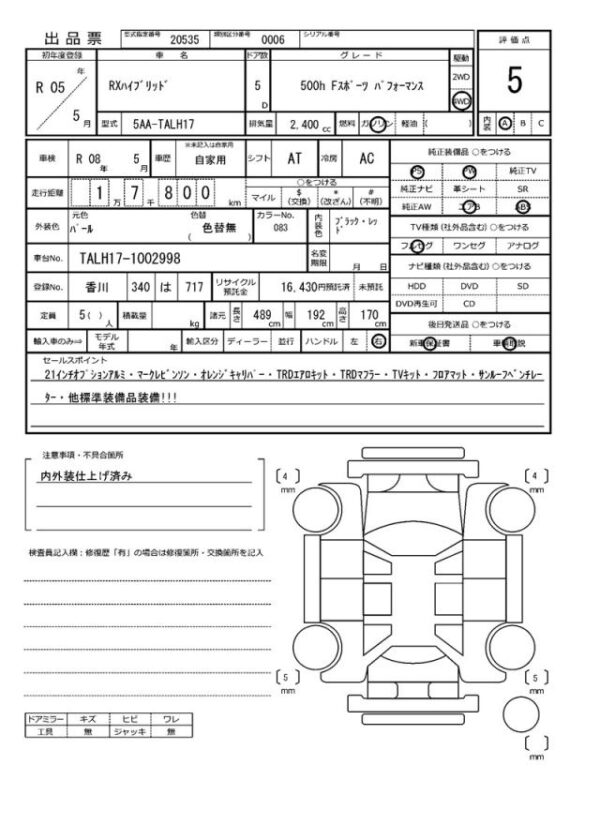 出品票
型式指定番号 20535 類別区分番号 0006 シリアル番号
評価点
5
初年度登録 車名 ドア数 グレード 駆動
R 05 年 5 月
RXハイブリッド 5 D 500h Fスポーツ パフォーマンス
2WD
4WD
型式 5AA-TALH17 排気量 2,400 cc 燃料 ガソリン 軽油 ( )
内装 A B C
車検 R 08 年 5 月 車歴 ※未記入は自家用 自家用 シフト AT 冷房 AC
走行距離 1 万 7 千 8 0 0 km
○をつける
マイル $ (交換) * (改ざん) # (不明)
外装色 元色 パール 色替 ( 色替無 ) カラーNo. 083 内装色 ブラック・レッド
車台No. TALH17-1002998 名変期限 月 日
登録No. 香川 340 は 717 リサイクル預託金 16,430円預託済 未預託
定員 5( ) 人 積載量 kg 諸元 長さ 489 cm 幅 192 cm 高さ 170 cm
輸入車のみ⇒ モデル年式 年 輸入区分 ディーラー 並行 ハンドル 左 右
純正装備品 ○をつける
PS PW 純正TV
純正ナビ 革シート SR
純正AW エアB ABS
TV種類(社外品含む) ○をつける
フルセグ ワンセグ アナログ
ナビ種類(社外品含む) ○をつける
HDD DVD SD
DVD再生可 CD
後日発送品 ○をつける
新車保証書 車輌取説
セールスポイント
21インチオプションアルミ・マークレビンソン・オレンジキャリパー・TRDエアロキット・TRDマフラー・TVキット・フロアマット・サンルーフベンチレー
ター・他標準装備品装備!!!
注意事項・不具合箇所
内外装仕上げ済み
検査員記入欄:修復歴「有」の場合は修復箇所・交換箇所を記入
[ 4 ] mm
[ 4 ] mm
[ 5 ] mm
[ 5 ] mm
[ ] mm
ドアミラー キズ ヒビ ワレ
工具 無 ジャッキ 無